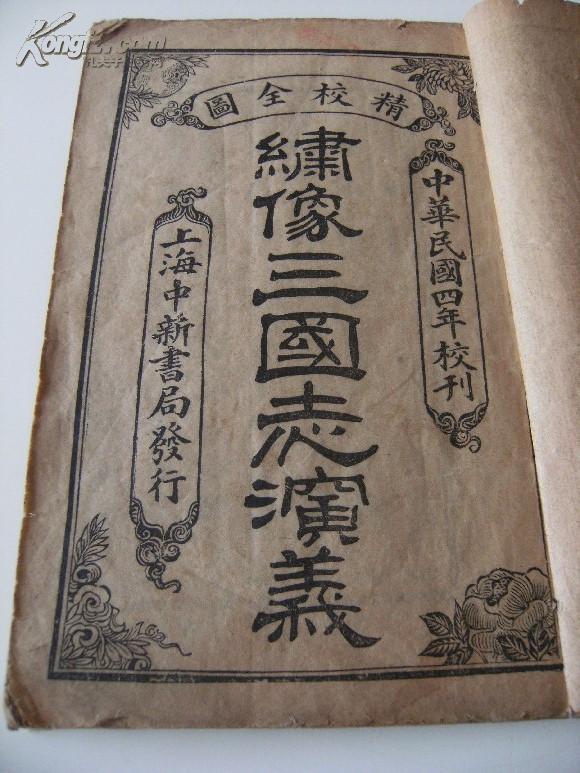 精校全圖
中華民國四年校刊
繡像三國志演義
上海中新書局發行
Kongfz.com